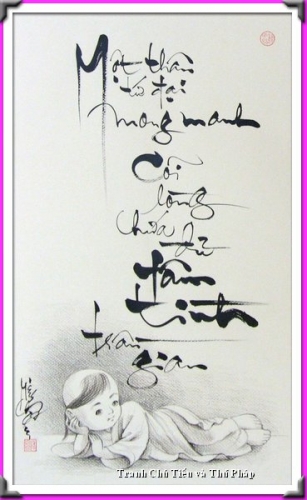 Một thân
tứ đại
mong manh
Cõi
lòng
chứa đủ
tâm
tình
trần
gian
Tranh Chú Tiểu và Thư Pháp